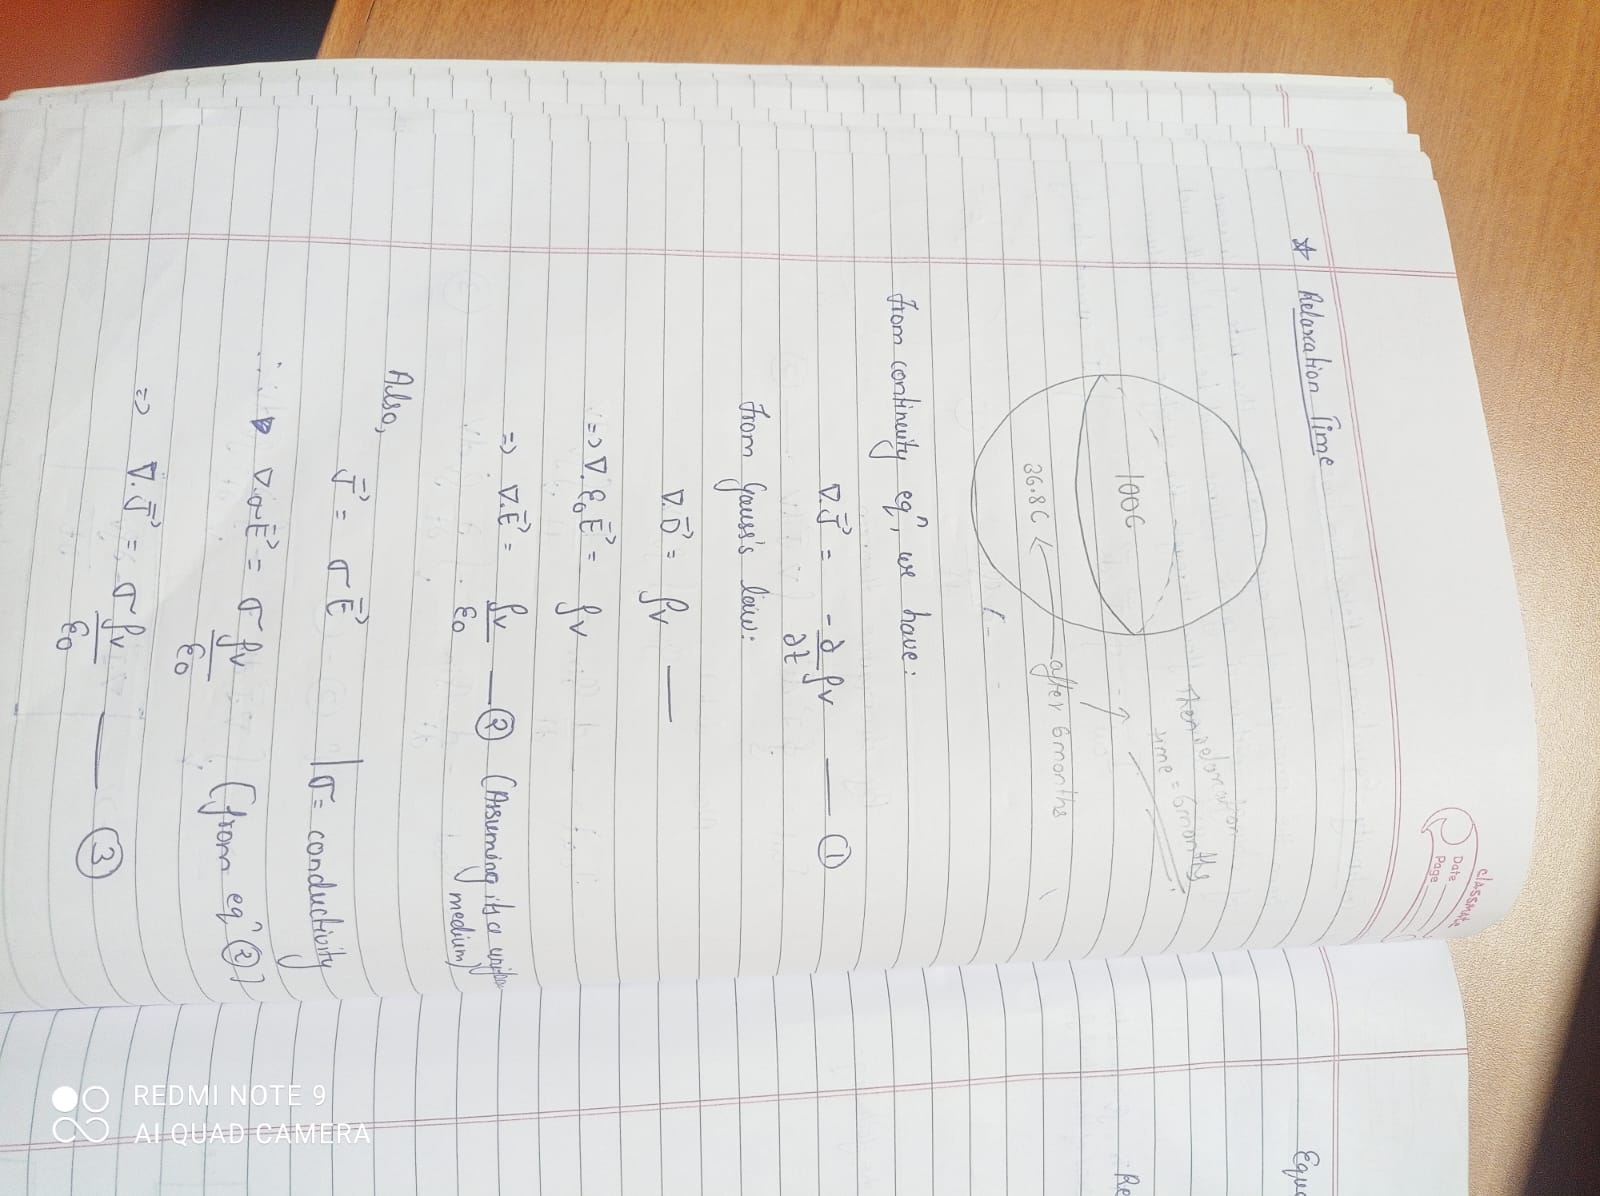 classmate
Date
Page
☆ Relaxation Time
100C
36.8C ← after 6 months
time = 6 months
From continuity eqⁿ, we have:
∇.J⃗ = -∂/∂t ρv —— ①
From Gauss's law:
∇.D⃗ = ρv ——
=> ∇.ε₀E⃗ = ρv
=> ∇.E⃗ = ρv/ε₀ —— ② (Assuming its a
medium)
Also,
J⃗ = σE⃗ | σ = conductivity
∴ ∇.σE⃗ = σρv/ε₀ (from eqⁿ ②)
=> ∇.J⃗ = σρv/ε₀ —— ③
Equ
Re
REDMI NOTE 9
AI QUAD CAMERA